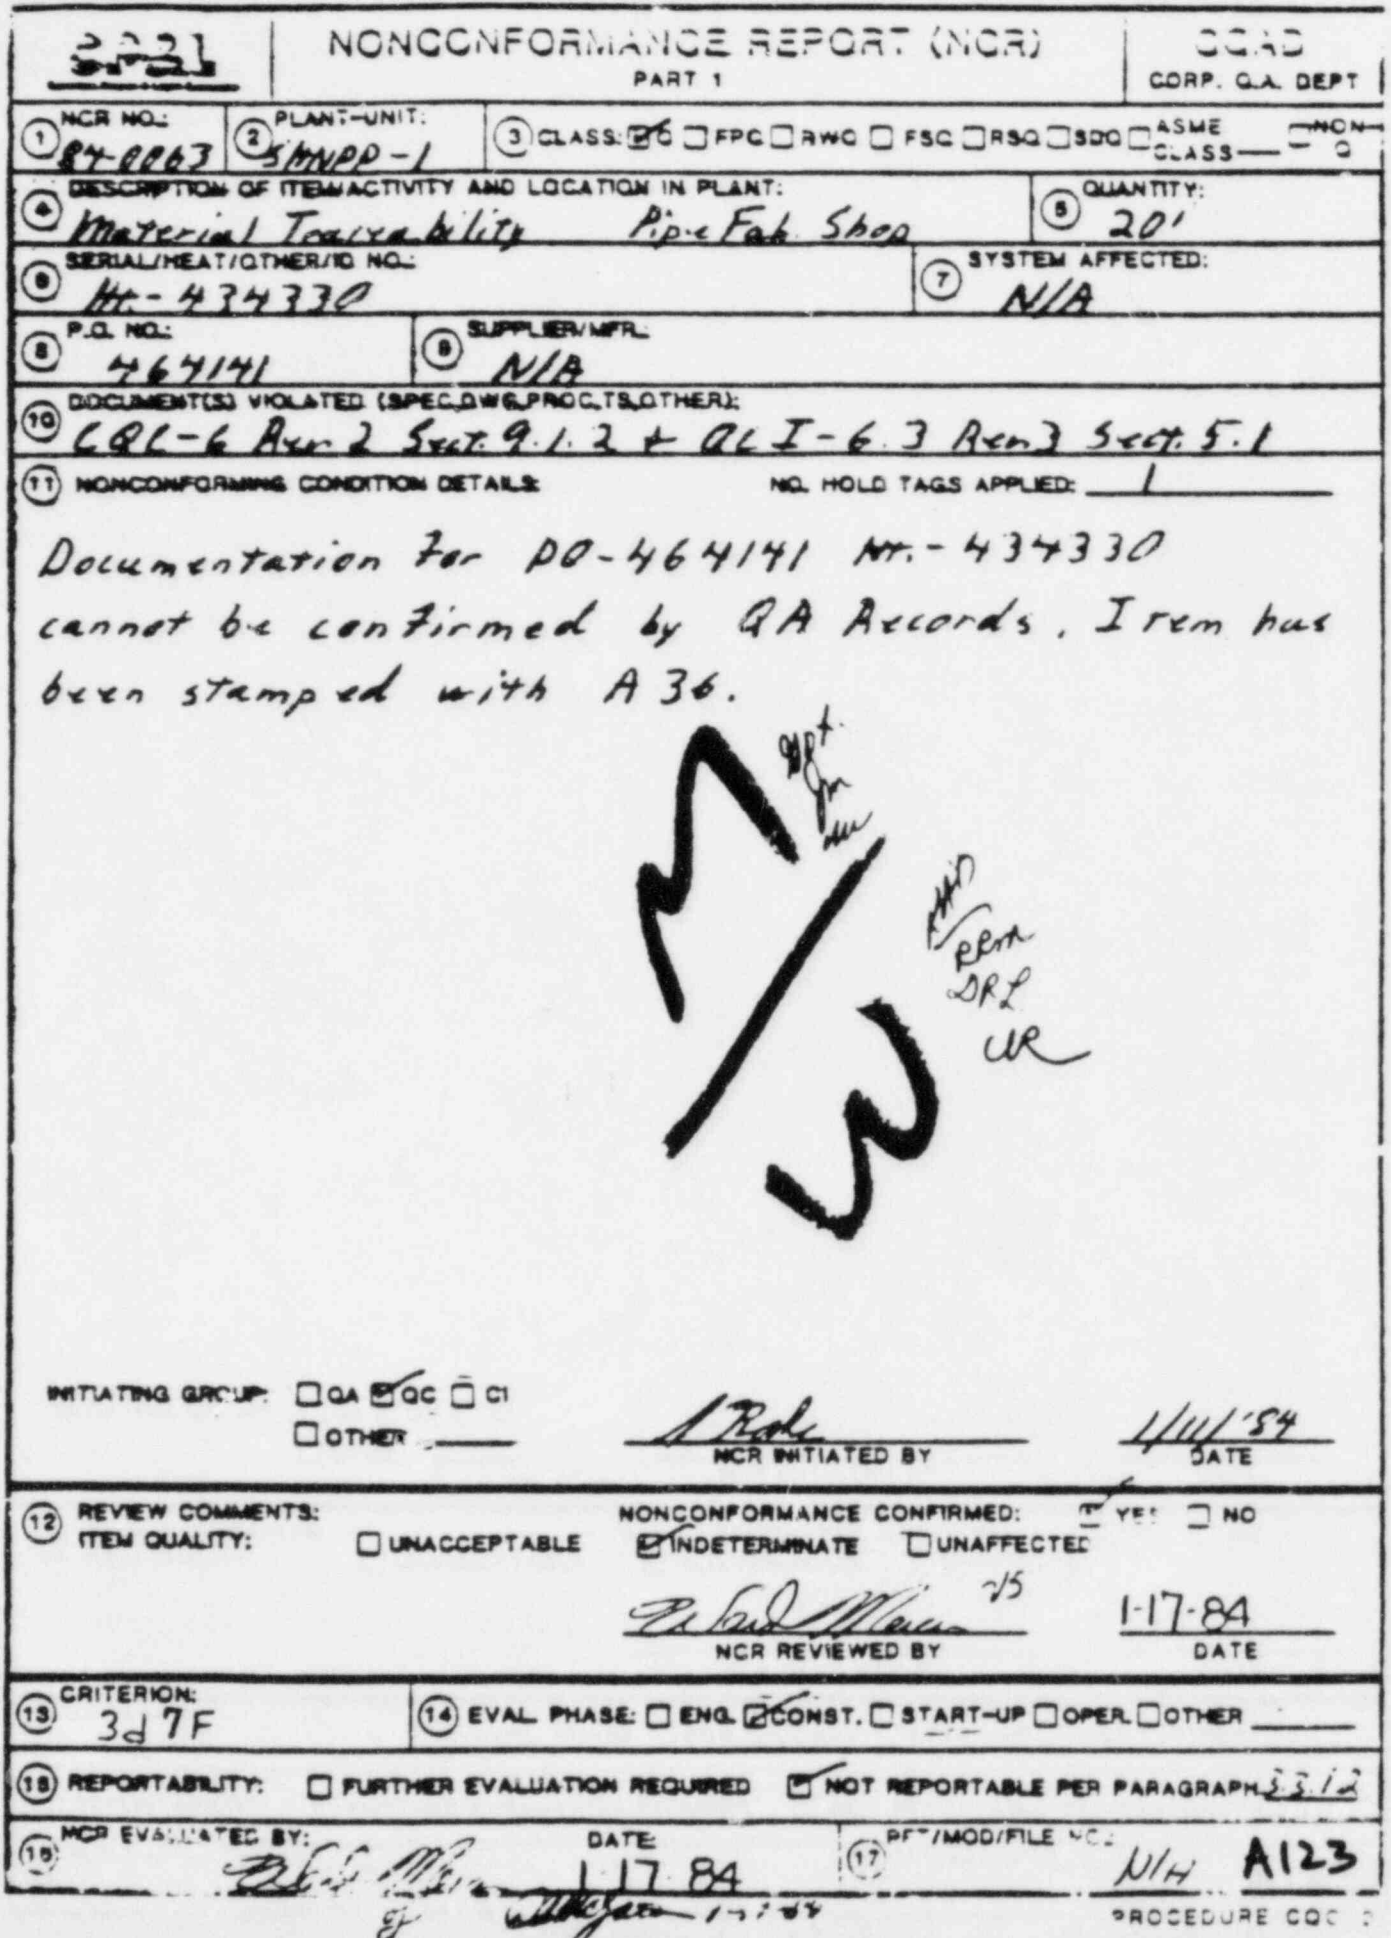 NONCONFORMANCE REPORT (NCR)
PART 1
CORP. Q.A. DEPT
1 NCR NO.: 84-0063
2 PLANT-UNIT: SHNPP-1
3 CLASS: Q FPC RWC FSC RSQ SDG ASME CLASS NON-Q
4 DESCRIPTION OF ITEM/ACTIVITY AND LOCATION IN PLANT:
Material Traceability Pipe Fab. Shop
5 QUANTITY: 20'
6 SERIAL/HEAT/OTHER/ID NO.:
Ht.- 434330
7 SYSTEM AFFECTED:
N/A
8 P.O. NO.:
464141
9 SUPPLIER/MFR.:
N/A
10 DOCUMENT(S) VIOLATED (SPEC,DWG,PROC,TS,OTHER):
CQC-6 Rev. 2 Sect. 9.1.2 + QCI-6.3 Rev 3 Sect. 5.1
11 NONCONFORMING CONDITION DETAILS: NO. HOLD TAGS APPLIED: 1
Documentation for PO-464141 Ht.-434330
cannot be confirmed by QA Records. Item has
been stamped with A36.
M
RRM
DRL
W
INITIATING GROUP: QA QC CI
OTHER
NCR INITIATED BY
1/11/'84
DATE
12 REVIEW COMMENTS: NONCONFORMANCE CONFIRMED: YES NO
ITEM QUALITY: UNACCEPTABLE INDETERMINATE UNAFFECTED
1-17-84
NCR REVIEWED BY DATE
13 CRITERION:
3d 7F
14 EVAL PHASE: ENG. CONST. START-UP OPER. OTHER
15 REPORTABILITY: FURTHER EVALUATION REQUIRED NOT REPORTABLE PER PARAGRAPH 3.3.12
16 NCR EVALUATED BY: DATE: 1-17-84
17 N/A A123
PROCEDURE CQC